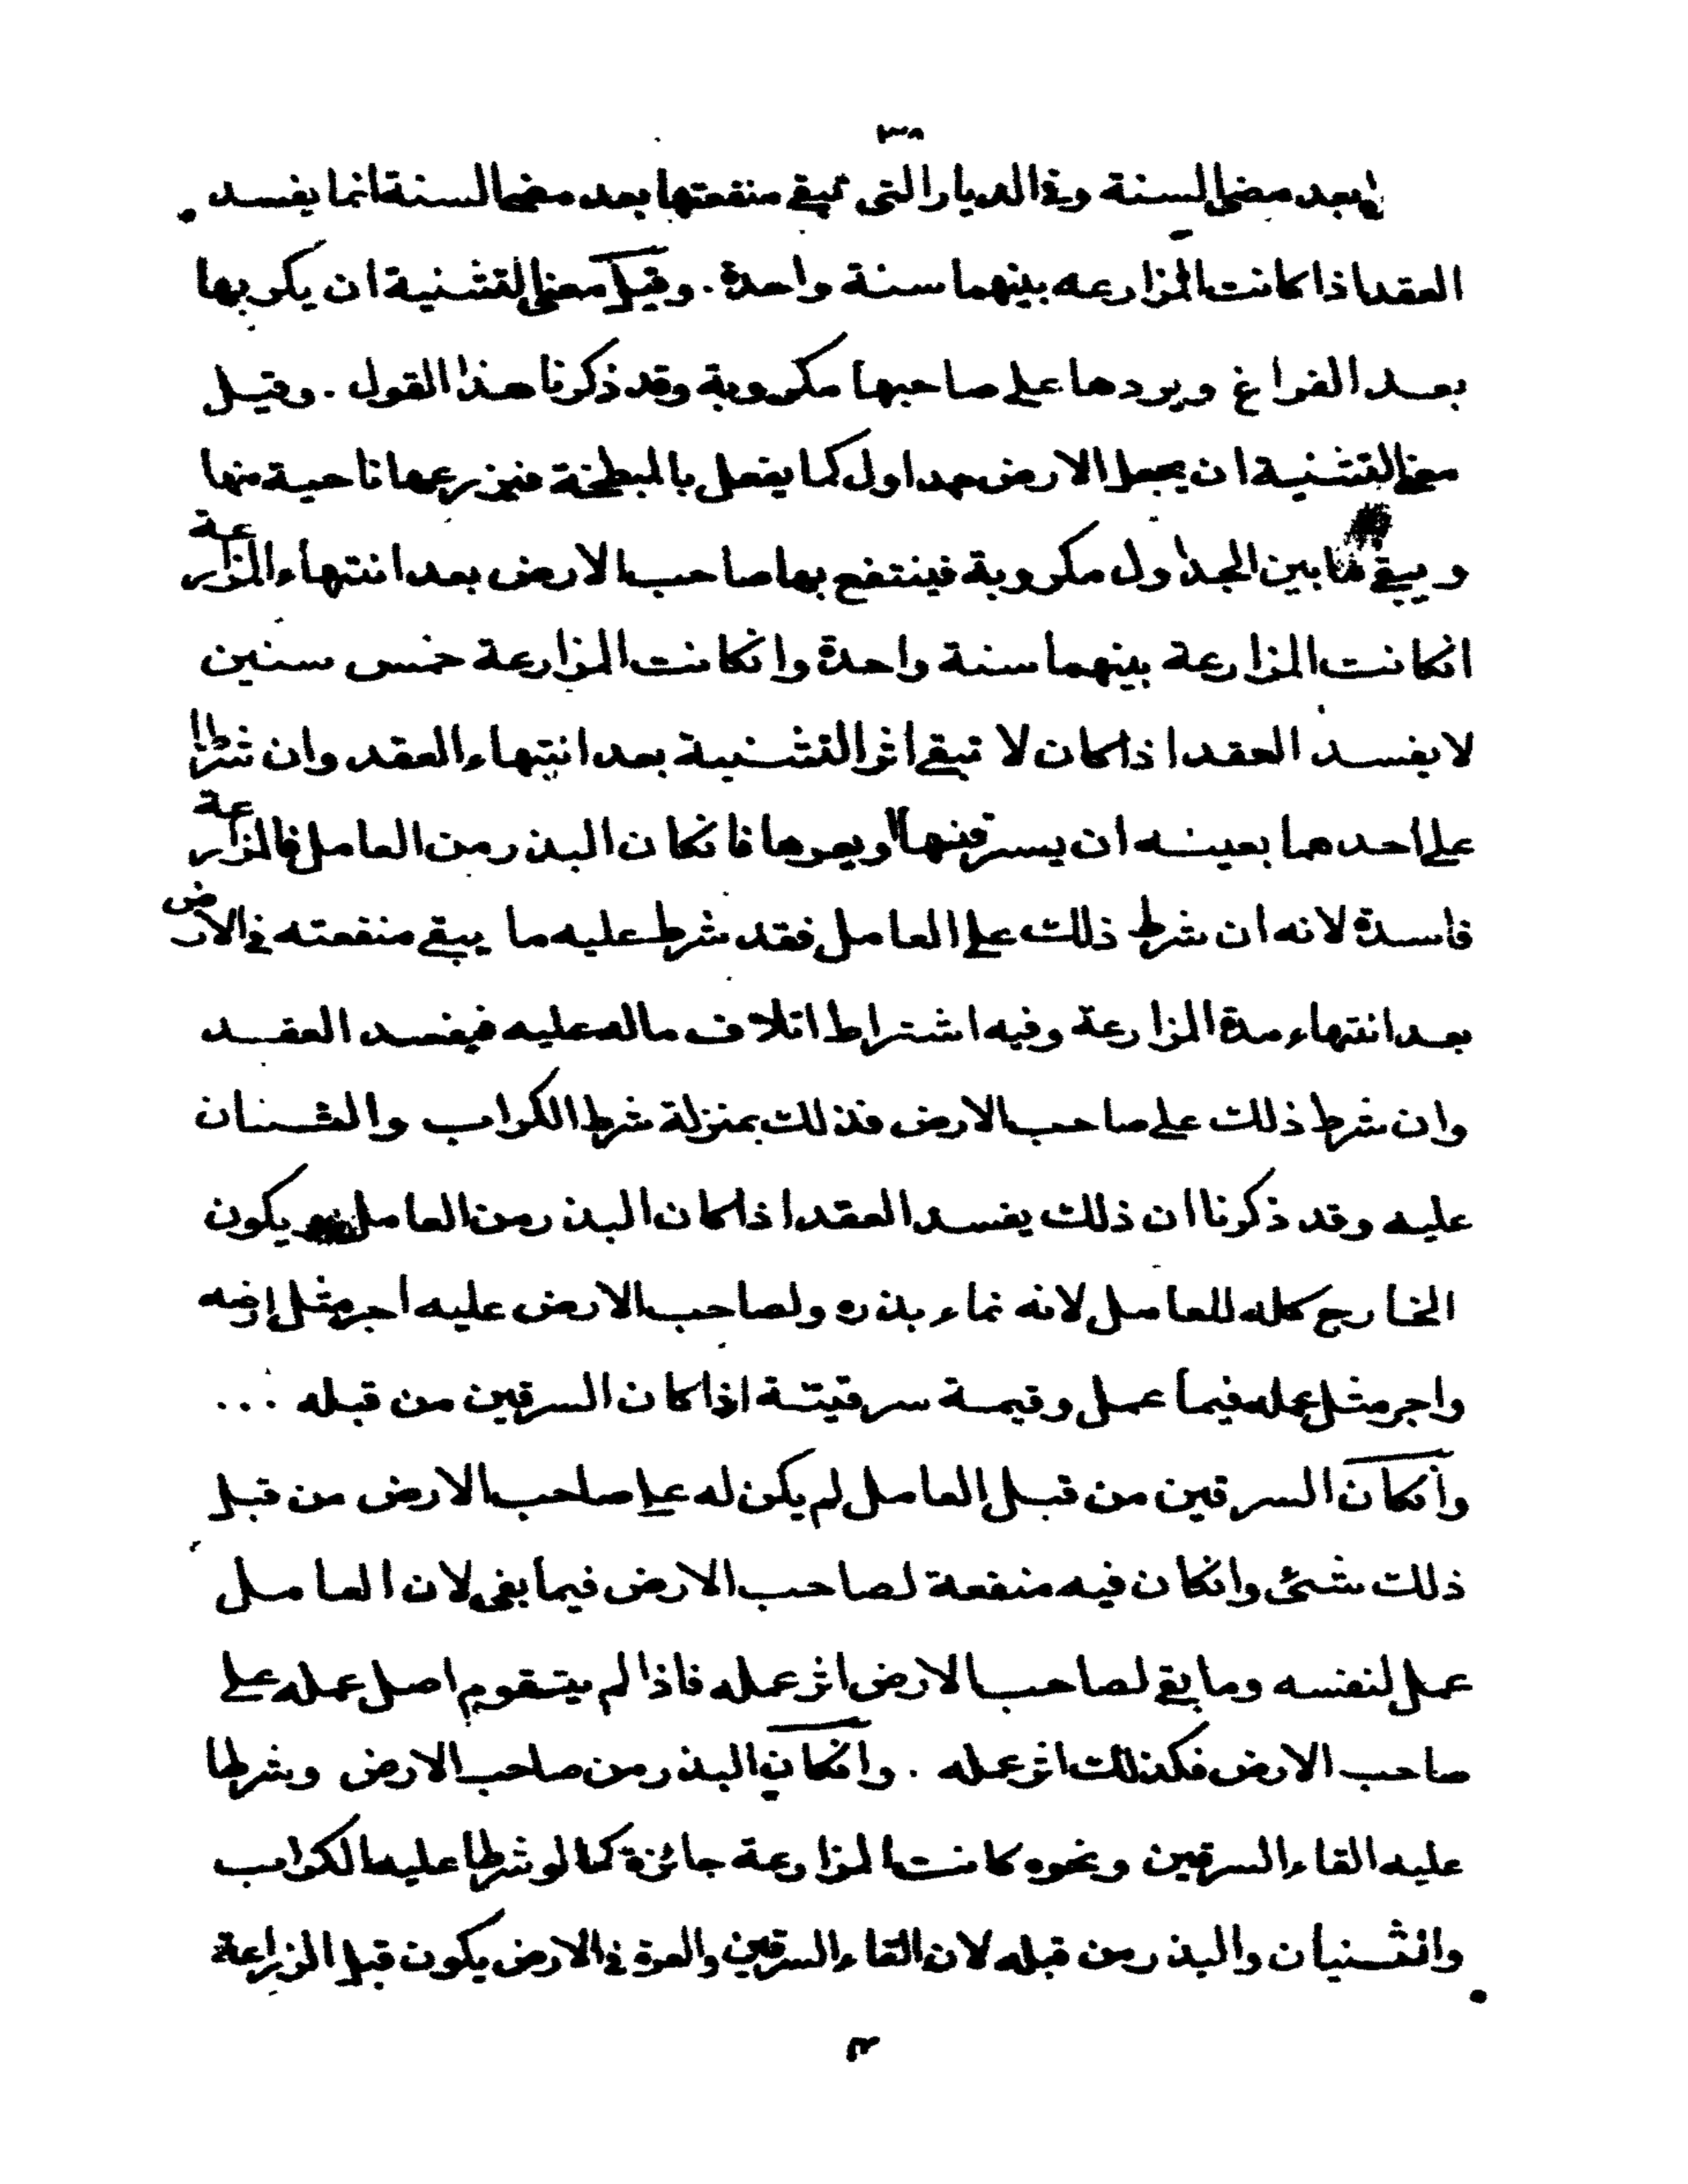 ٣٨
بعد مضى السنة وفى الديار التى تبقى منفعتها بعد مضى السنة انما يفسد
العقد اذا كانت المزارعه بينهما سنة واحدة . وقيل معنى التثنية ان يكربها
بعد الفراغ ويردها على صاحبها مكروبة وقد ذكرنا هذا القول . وقيل
معنى التثنية ان يجعل الارض جداول كما يفعل بالمبطخة فيزرعها ناحية منها
ويبقى ما بين الجداول مكروبة فينتفع بها صاحب الارض بعد انتهاء المزارعة
انكانت المزارعة بينهما سنة واحدة وانكانت المزارعة خمس سنين
لا يفسد العقد اذا كان لا تبقى اثر التثنية بعد انتهاء العقد وان شرطا
على احدهما بعينه ان يسرقنها او يعرها فانكان البذر من العامل فالمزارعة
فاسدة لانه ان شرط ذلك على العامل فقد شرط عليه ما يبقى منفعته فى الارض
بعد انتهاء مدة المزارعة وفيه اشتراط اتلاف ماله عليه فيفسد العقد
وان شرط ذلك على صاحب الارض فذلك بمنزلة شرط الكراب والثنيان
عليه وقد ذكرنا ان ذلك يفسد العقد اذا كان البذر من العامل يكون
الخارج كله للعامل لانه نماء بذره ولصاحب الارض عليه اجر مثل ارضه
واجر مثل عمله فيما عمل وقيمة سرقينه اذا كان السرقين من قبله ...
وانكان السرقين من قبل العامل لم يكن له على صاحب الارض من قبل
ذلك شئ وانكان فيه منفعة لصاحب الارض فيما بقى لان العامل
عمل لنفسه وما بقى لصاحب الارض اثر عمله فاذا لم يتقوم اصل عمله على
صاحب الارض فكذلك اثر عمله . وانكان البذر من صاحب الارض وشرطا
عليه القاء السرقين ونحوه كانت المزارعة جائزة كما لو شرطا عليه الكراب
والثنيان والبذر من قبله لان القاء السرقين والعرة فى الارض يكون قبل الزراعة